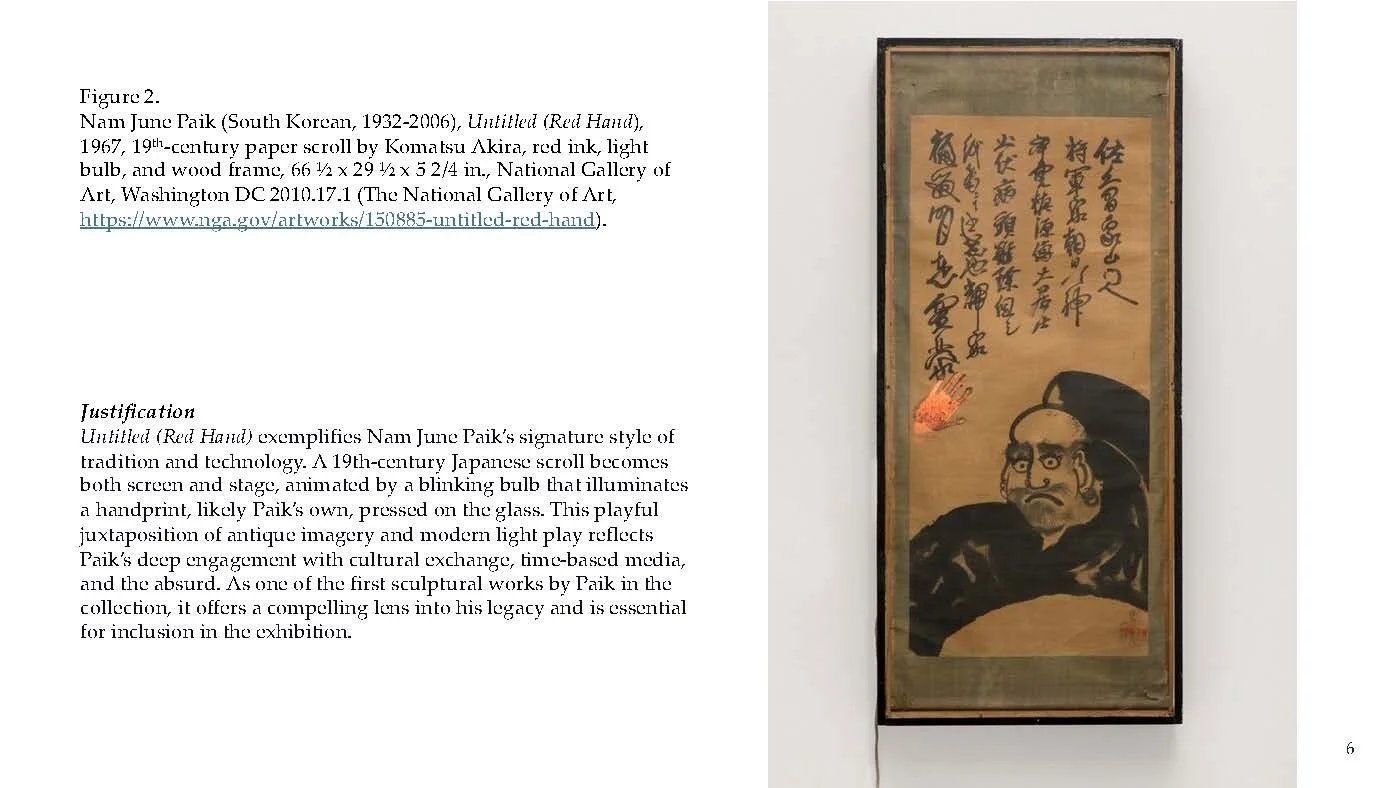 Figure 2.
Nam June Paik (South Korean, 1932-2006), Untitled (Red Hand),
1967, 19th-century paper scroll by Komatsu Akira, red ink, light
bulb, and wood frame, 66 ½ x 29 ½ x 5 2/4 in., National Gallery of
Art, Washington DC 2010.17.1 (The National Gallery of Art,
https://www.nga.gov/artworks/150885-untitled-red-hand).
Justification
Untitled (Red Hand) exemplifies Nam June Paik's signature style of
tradition and technology. A 19th-century Japanese scroll becomes
both screen and stage, animated by a blinking bulb that illuminates
a handprint, likely Paik's own, pressed on the glass. This playful
juxtaposition of antique imagery and modern light play reflects
Paik's deep engagement with cultural exchange, time-based media,
and the absurd. As one of the first sculptural works by Paik in the
collection, it offers a compelling lens into his legacy and is essential
for inclusion in the exhibition.
6